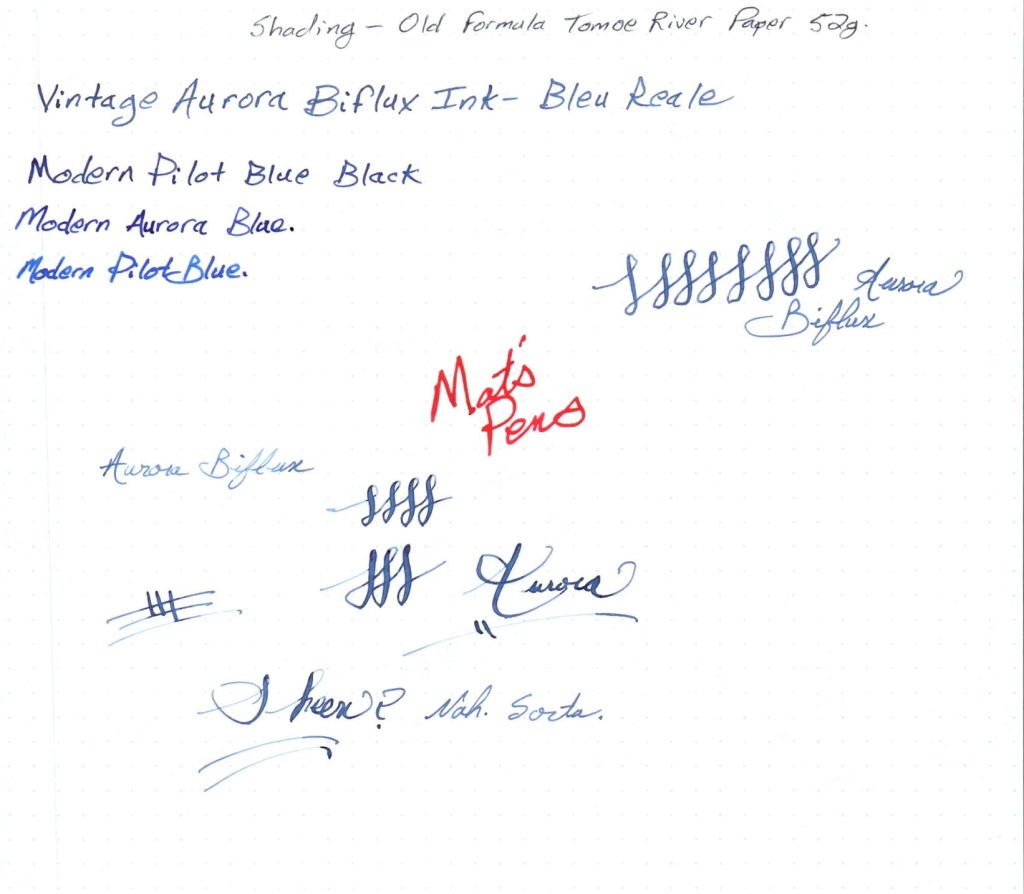 Shading - Old Formula Tomoe River Paper 52g.
Vintage Aurora Biflux Ink - Bleu Reale
Modern Pilot Blue Black
Modern Aurora Blue.
Modern Pilot Blue.
Aurora
Biflux
Mat's
Pens
Aurora Biflux
Aurora
Sheen? Nah. Sorta.